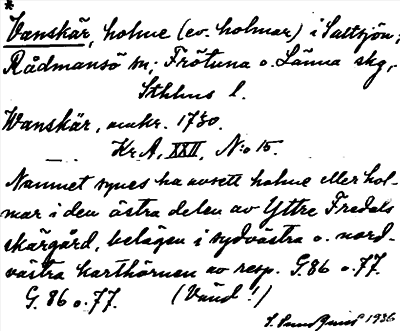 *
Vanskär, holme (ev. holmar) i Saltsjön,
Rådmansö sn; Frötuna o. Länna skg,
Sthlms l.
Wanskär, omkr. 1730.
Kr.A, XXII, N:o 15.
Namnet synes ha avsett holme eller hol-
mar i den östra delen av Yttre Fredels
skärgård, belägen i sydvästra o. nord-
västra karthörnen av resp. G.86 o. 77.
G. 86 o. 77. (Vänd!)
1936